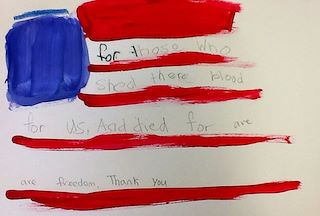 for those who
shed there blood
for us, And died for are
are freedom, Thank you